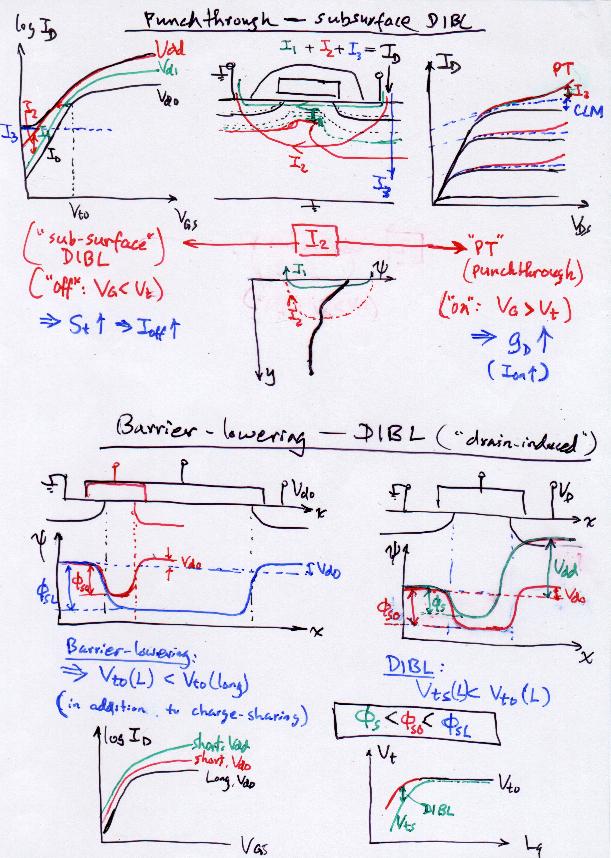 Punchthrough — subsurface DIBL
log I_D
Vdd
Vd1
Vd0
I_2
I_3
I_1
I_0
Vt0
V_GS
I_1 + I_2 + I_3 = I_D
I_1
I_2
I_3
I_D
PT
I_3
CLM
V_DS
("sub-surface" DIBL)
("off": V_G < V_t)
⇒ S_t ↑ ⇒ I_off ↑
I_2
"PT"
(punchthrough)
("on": V_G > V_t)
⇒ g_D ↑
(I_on ↑)
I_1
I_2
ψ
y
Barrier-lowering — DIBL ("drain-induced")
Vd0
x
ψ
ϕ_SL
ϕ_S0
Vd0
Vd0
x
V_D
x
ψ
ϕ_S0
ϕ_S
Vdd
Vd0
x
Barrier-lowering:
⇒ Vt0(L) < Vt0(long)
(in addition to charge-sharing)
DIBL:
Vts(L) < Vt0(L)
ϕ_S < ϕ_S0 < ϕ_SL
log I_D
short, Vdd
short, Vd0
Long, Vd0
V_GS
V_t
Vt0
DIBL
Vts
L_g